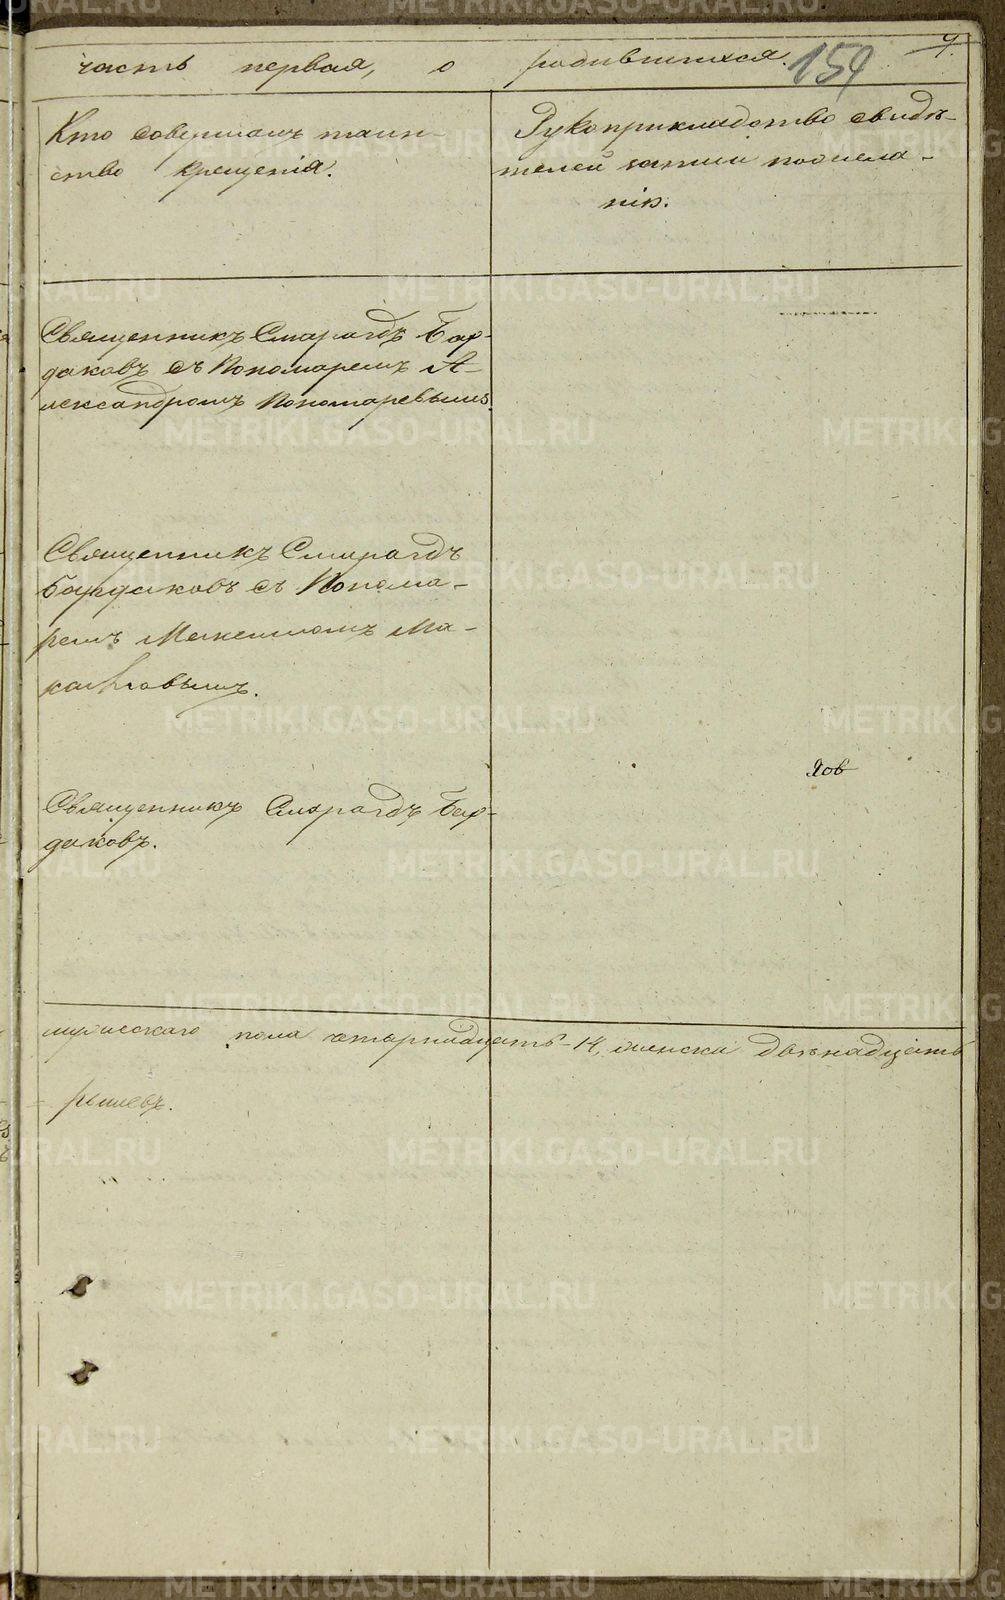 часть первая, о родившихся. 159
Кто совершалъ таин-
ство крещенія.
Рукоприкладство свидѣ-
телей записи по жела-
нію.
Священникъ Смарагдъ Бар-
даковъ съ Пономаремъ А-
лександромъ Пономаревымъ.
Священникъ Смарагдъ
Бардаковъ съ Понома-
ремъ Ма-
Священникъ Смарагдъ Бар-
даковъ.
мужескаго пола четырнадцать-14, женска двѣнадцать
METRIKI.GASO-URAL.RU